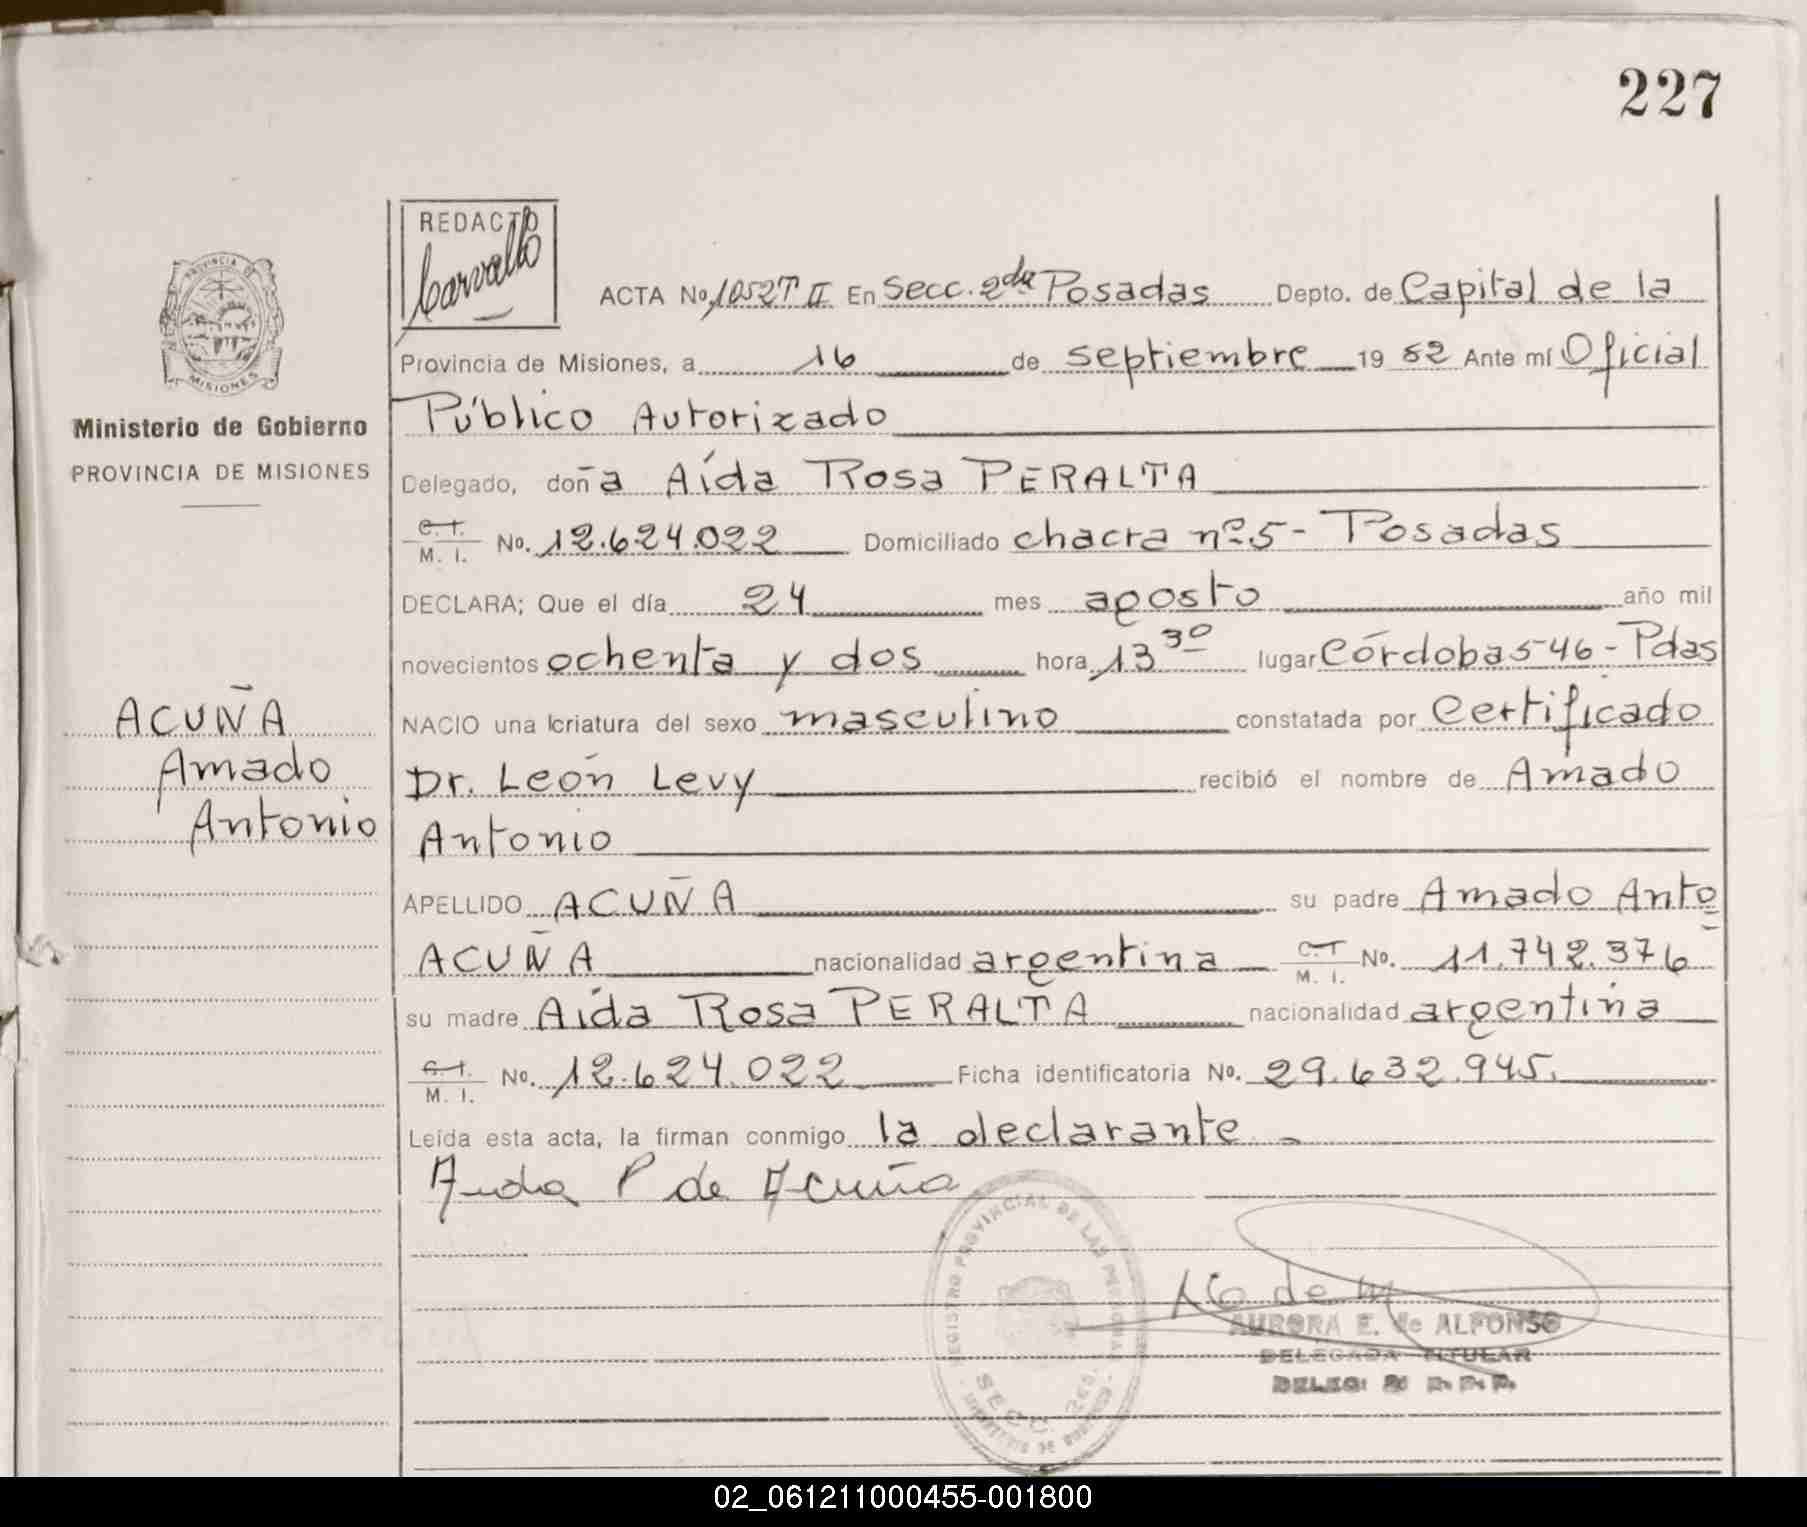 227
REDACTO
Carvallo
PROVINCIA DE
MISIONES
Ministerio de Gobierno
PROVINCIA DE MISIONES
ACUÑA
Amado
Antonio
ACTA No 1052 T II En Secc. 2da Posadas Depto. de Capital de la
Provincia de Misiones, a 16 de septiembre 19 82 Ante mí Oficial
Público Autorizado
Delegado, doña Aída Rosa PERALTA
C. I. M. I. No. 12.624.022 Domiciliado chacra nº 5 - Posadas
DECLARA; Que el día 24 mes agosto año mil
novecientos ochenta y dos hora 13 30 lugar Córdoba 546 - Pdas
NACIO una criatura del sexo masculino constatada por Certificado
Dr. León Levy recibió el nombre de Amado
Antonio
APELLIDO ACUÑA su padre Amado Anto
ACUÑA nacionalidad argentina C.I M. I. No. 11.742.376
su madre Aída Rosa PERALTA nacionalidad argentina
C. I. M. I. No. 12.624.022 Ficha identificatoria No. 29.632.945.
Leída esta acta, la firman conmigo la declarante
Aída P de Acuña
REGISTRO PROVINCIAL DE LAS PERSONAS
SECC. 2da.
AURORA E. de ALFONSO
DELEGADA TITULAR
DELEG: 2ª R.P.P.
02_061211000455-001800